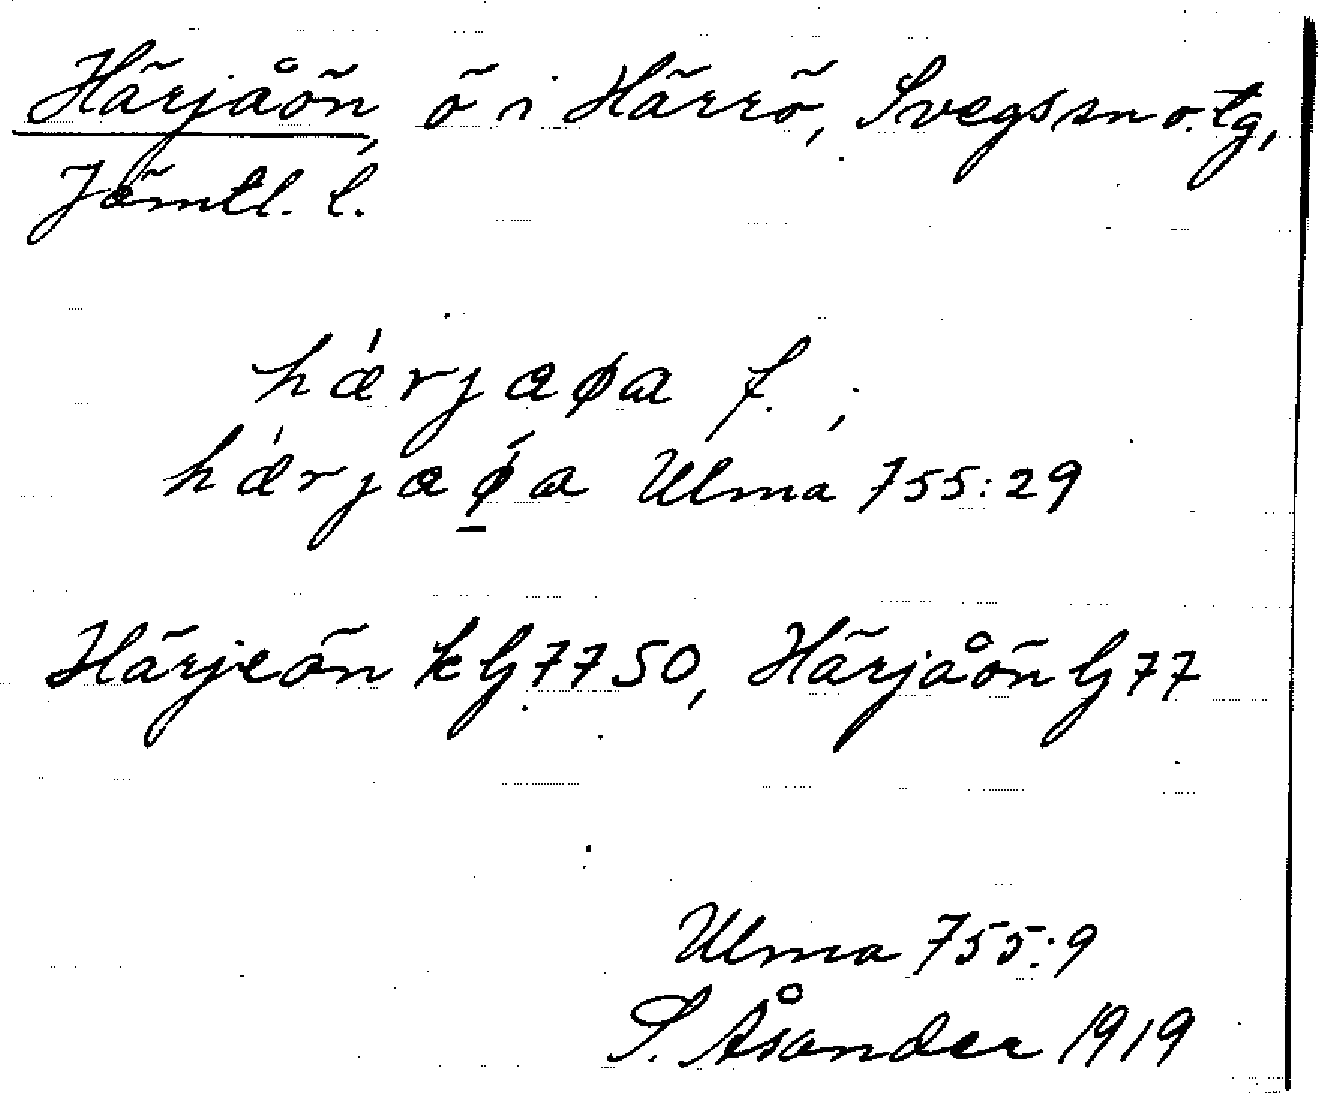 Härjåön, ö i Härrö, Svegs sn o. tg,
Jämtl. l.
hǽrjaøa f.,
hǽrjaǿ̱a Ulma 755:29
Härjeån k Gj 77 50, Härjåön Gj 77
Ulma 755:9
S. Åsander 1919